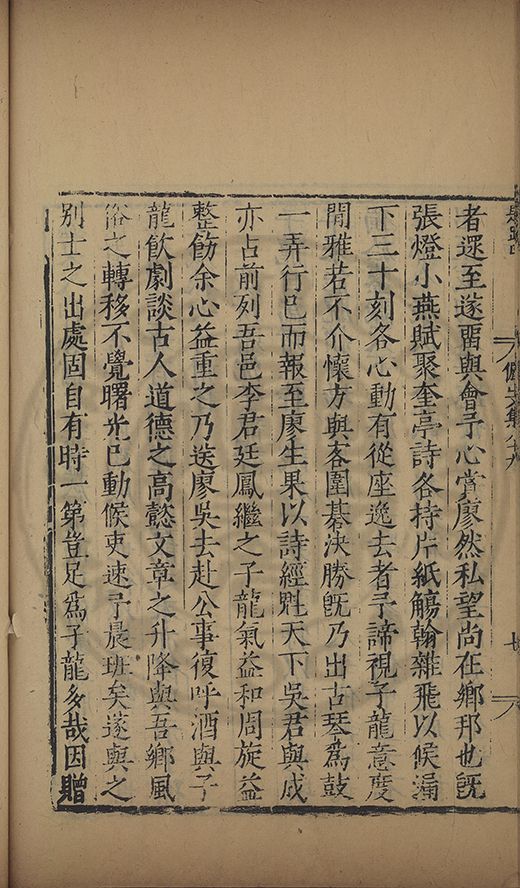 者還至遂畱與會予心嘗廖然私望尚在鄉邦也旣
張燈小燕賦聚奎亭詩各持片紙觴翰雜飛以候漏
下三十刻各心動有從座逸去者予諦視子龍意度
閒雅若不介懷方與客圍棊決勝旣乃出古琴爲鼓
一弄行巳而報至廖生果以詩經魁天下吳君與成
亦占前列吾邑李君廷鳳繼之子龍氣益和周旋益
整飭余心益重之乃送廖吳去赴公事復呼酒與子
龍飮劇談古人道德之高懿文章之升降與吾鄉風
俗之轉移不覺曙光巳動候吏速予晨班矣遂與之
別士之出處固自有時一第豈足爲子龍多哉因贈